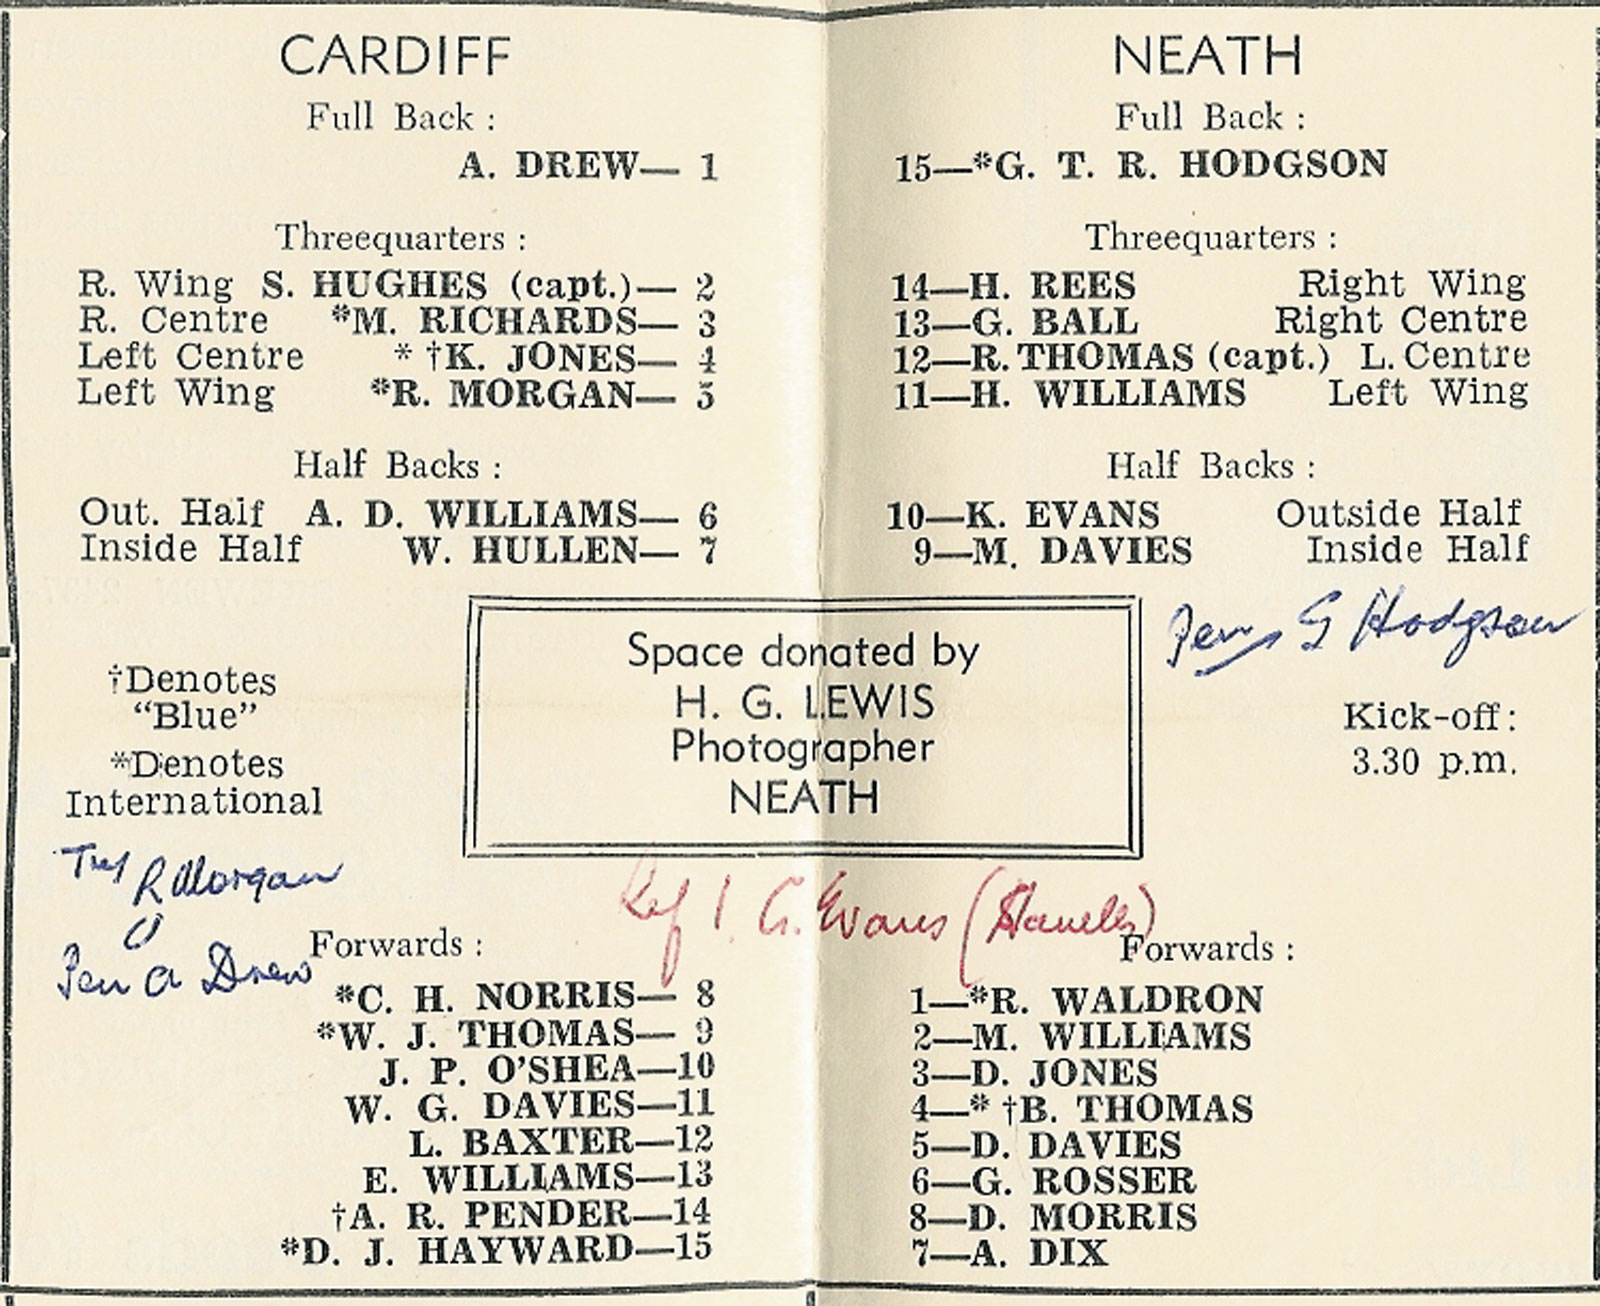 CARDIFF
Full Back :
A. DREW— 1
Threequarters :
R. Wing S. HUGHES (capt.)— 2
R. Centre *M. RICHARDS— 3
Left Centre * †K. JONES— 4
Left Wing *R. MORGAN— 5
Half Backs :
Out. Half A. D. WILLIAMS— 6
Inside Half W. HULLEN— 7
NEATH
Full Back :
15—*G. T. R. HODGSON
Threequarters :
14—H. REES Right Wing
13—G. BALL Right Centre
12—R. THOMAS (capt.) L. Centre
11—H. WILLIAMS Left Wing
Half Backs :
10—K. EVANS Outside Half
9—M. DAVIES Inside Half
Pen G Hodgson
†Denotes
"Blue"
*Denotes
International
Space donated by
H. G. LEWIS
Photographer
NEATH
Kick-off:
3.30 p.m.
Try R Morgan
Pen A Drew
Ref I. G. Evans
Forwards :
*C. H. NORRIS— 8
*W. J. THOMAS— 9
J. P. O'SHEA—10
W. G. DAVIES—11
L. BAXTER—12
E. WILLIAMS—13
†A. R. PENDER—14
*D. J. HAYWARD—15
Forwards :
1—*R. WALDRON
2—M. WILLIAMS
3—D. JONES
4—* †B. THOMAS
5—D. DAVIES
6—G. ROSSER
8—D. MORRIS
7—A. DIX